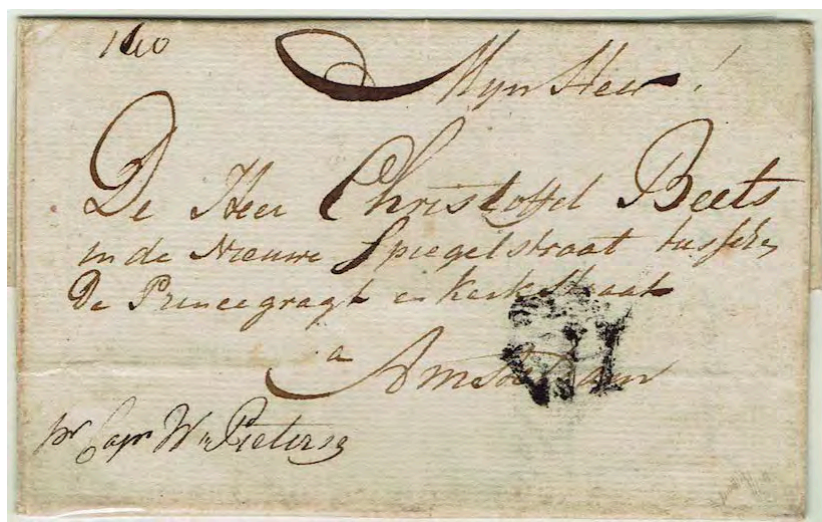 Myn Heer!
De Heer Christoffel Beets
in de Nieuwe Spiegelstraat tussche
De Princegragt en Kerkstraat
a
Amsterdam
pr Capt Wm Pieterse